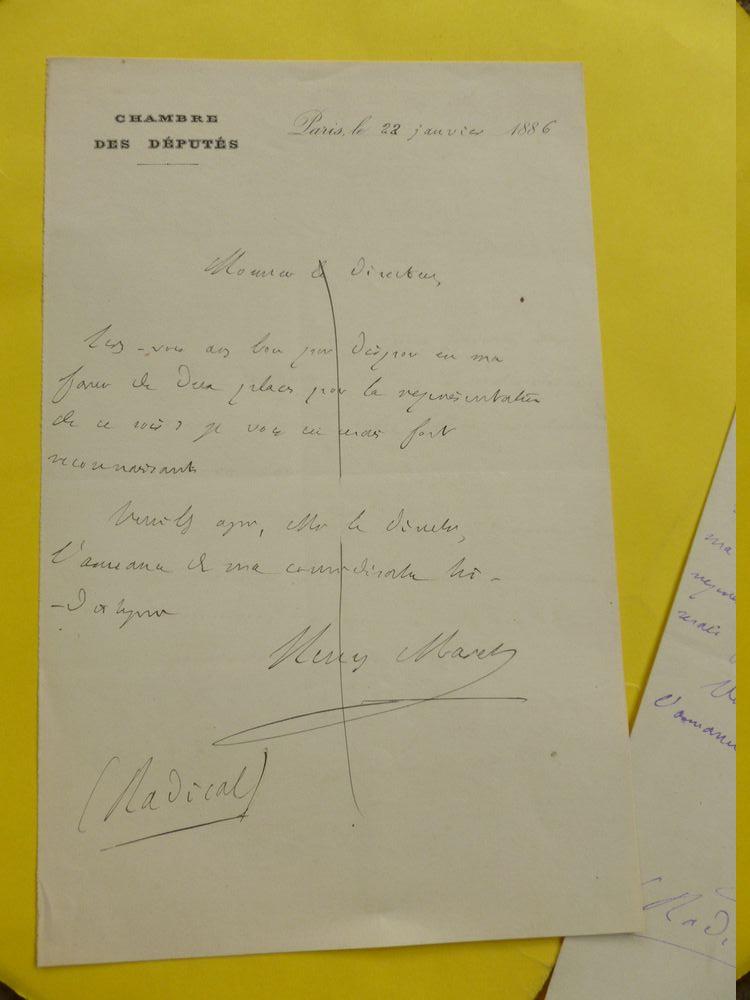 CHAMBRE
DES DÉPUTÉS
Paris, le 22 janvier 1886
Monsieur le Directeur,
-vous assez bon pour disposer en ma
faveur de deux places pour la représentation
de ce soir? je vous en serais fort
reconnaissant.
Veuillez agréer, Mr le directeur,
l'assurance de ma considération
Henry Maret
(Radical)
ma
serais
l'assurance
(Radi